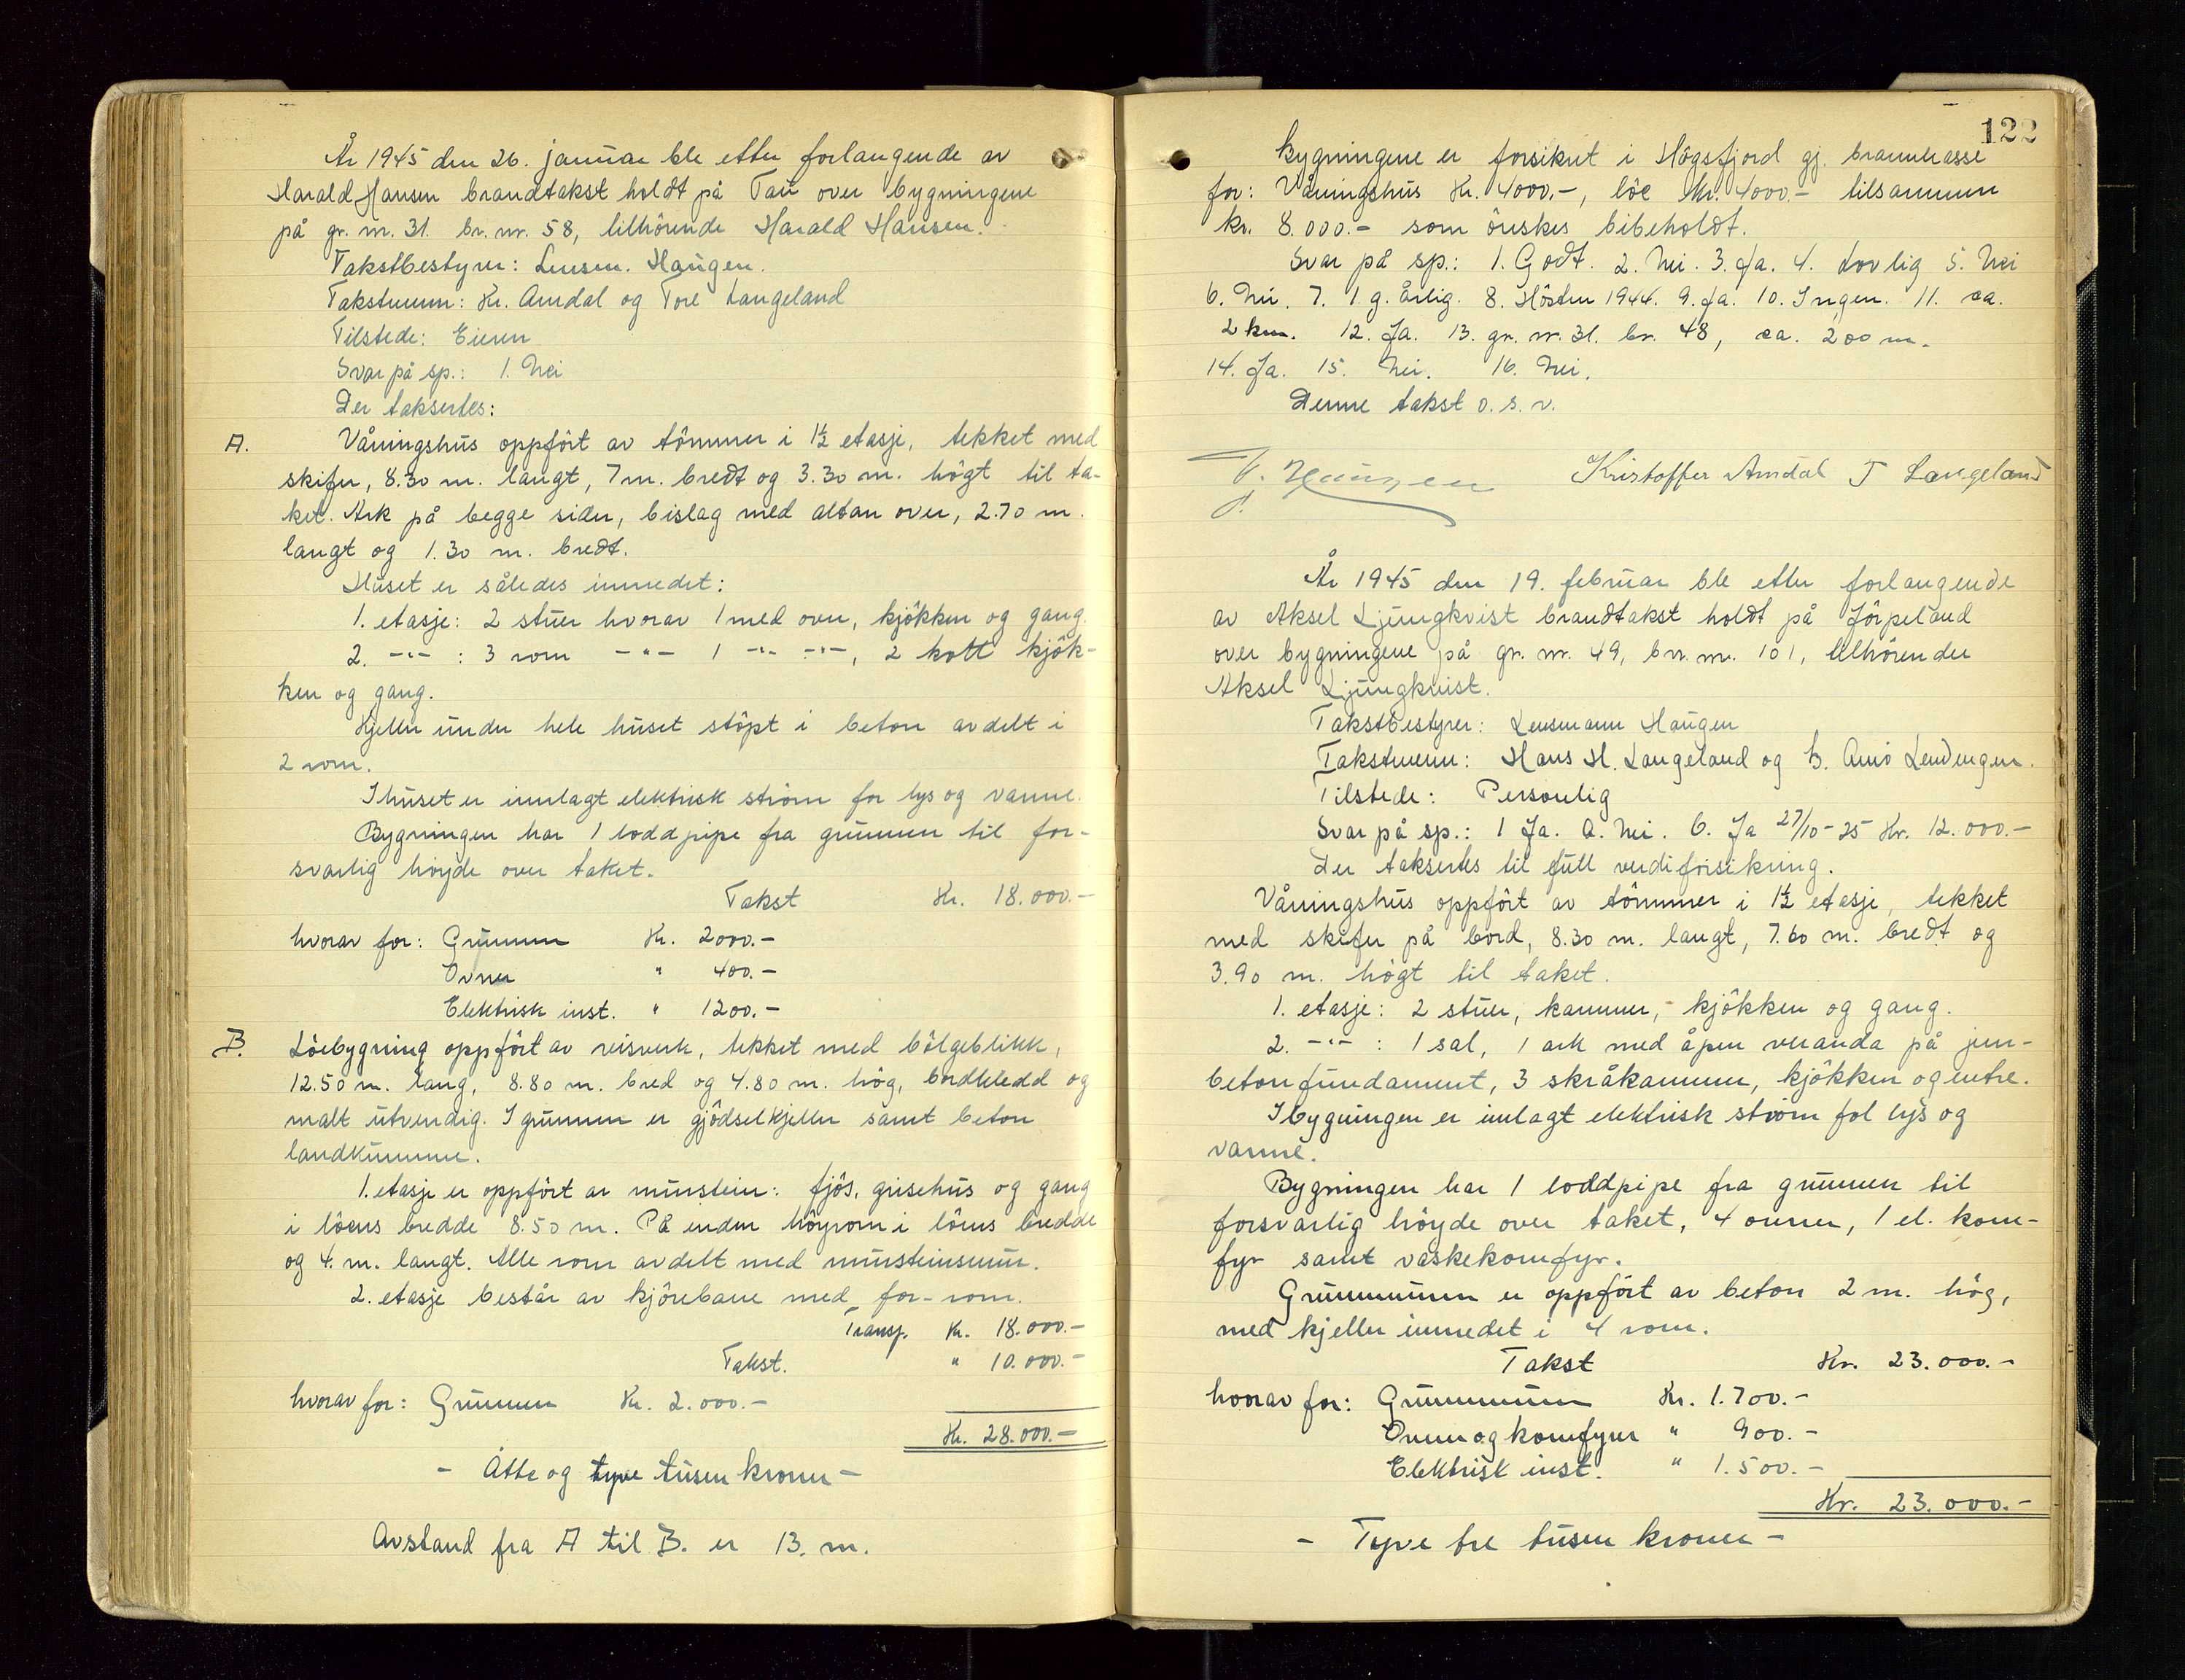 År 1945 den 26. januar ble etter forlangende av
Harald Hansen brandtakst holdt på Tau over bygningene
på gr. nr. 31. br. nr. 58, tilhörende Harald Hansen.
Takstbestyrer: Lensm. Haugen.
Takstmenn: Kr. Amdal og Tore Langeland
Tilstede: Eieren
Svar på sp.: 1. Nei
Der taksertes:
A. Våningshus oppfört av tömmer i 1½ etasje, tekket med
skifer, 8.30 m. langt, 7 m. bredt og 3.30 m. högt til ta-
ket. Ark på begge sider, bislag med altan over, 2.70 m.
langt og 1.30 m. bredt.
Huset er således innredet:
1. etasje: 2 stuer hvorav 1 med ovn, kjökken og gang.
2. -"- : 3 rom -"- 1 -"- -"-, 2 kott kjök-
ken og gang.
Kjeller under hele huset stöpt i beton avdelt i
2 rom.
I huset er innlagt elektrisk ström for lys og varme.
Bygningen har 1 loddpipe fra grunnen til for-
svarlig höyde over taket.
Takst Kr. 18.000.-
hvorav for: Grunnen Kr. 2000.-
Ovner " 400.-
Elektrisk inst. " 1200.-
B. Löebygning oppfört av reisverk, tekket med bölgeblikk,
12.50 m. lang, 8.80 m. bred og 4.80 m. hög, bordkledd og
malt utvendig. I grunnen er gjödselkjeller samt beton
landkumme.
1. etasje er oppfört av murstein: fjös, grisehus og gang
i löens bredde 8.50 m. På enden höyrom i löens bredde
og 4. m. langt. Alle rom avdelt med mursteinsmur.
2. etasje består av kjörebane med for-rom.
Transp. Kr. 18.000.-
Takst. " 10.000.-
hvorav for: Grunnen Kr. 2.000.-
Kr. 28.000.-
- Åtte og tyve tusen kroner -
Avstand fra A til B. er 13. m.
122
Bygningene er forsikret i Högsfjord gj. brannkasse
for: Våningshus Kr. 4000.-, löe Kr. 4000.- tilsammen
kr. 8.000.- som önskes bibeholdt.
Svar på sp.: 1. Godt. 2. Nei. 3. Ja. 4. Lovlig 5. Nei
6. Nei. 7. 1 g. årlig. 8. Hösten 1944. 9. Ja. 10. Ingen. 11. ca.
2 km. 12. Ja. 13. gr. nr. 31. br. 48, ca. 200 m.
14. Ja. 15. Nei. 16. Nei.
Denne takst o. s. v.
Haugen Kristoffer Amdal T Langeland
År 1945 den 19. februar ble etter forlangende
av Aksel Ljungkvist brandtakst holdt på Jörpeland
over bygningene på gr. nr. 49, br. nr. 101, tilhörender
Aksel Ljungkvist.
Takstbestyrer: Lensmann Haugen
Takstmenn: Hans H. Langeland og Lendengen.
Tilstede: Personlig
Svar på sp.: 1 Ja. a. Nei. b. Ja 27/10-25 Kr. 12.000.-
Der taksertes til full verdiforsikring.
Våningshus oppfört av tömmer i 1½ etasje, tekket
med skifer på bord, 8.30 m. langt, 7.60 m. bredt og
3.90 m. högt til taket.
1. etasje: 2 stuer, kammer, kjökken og gang.
2. -"- : 1 sal, 1 ark med åpen veranda på jern-
betonfundament, 3 skråkammer, kjökken og entre.
I bygningen er innlagt elektrisk ström for lys og
varme.
Bygningen har 1 loddpipe fra grunnen til
forsvarlig höyde over taket, 4 ovner, 1 el. kom-
fyr samt vaskekomfyr.
Grunnmuren er oppfört av beton 2 m. hög,
med kjeller innredet i 4 rom.
Takst Kr. 23.000.-
hvorav for: Grunnmuren Kr. 1.700.-
Ovner og komfyrer " 900.-
Elektrisk inst. " 1.500.-
Kr. 23.000.-
- Tyve tre tusen kroner -